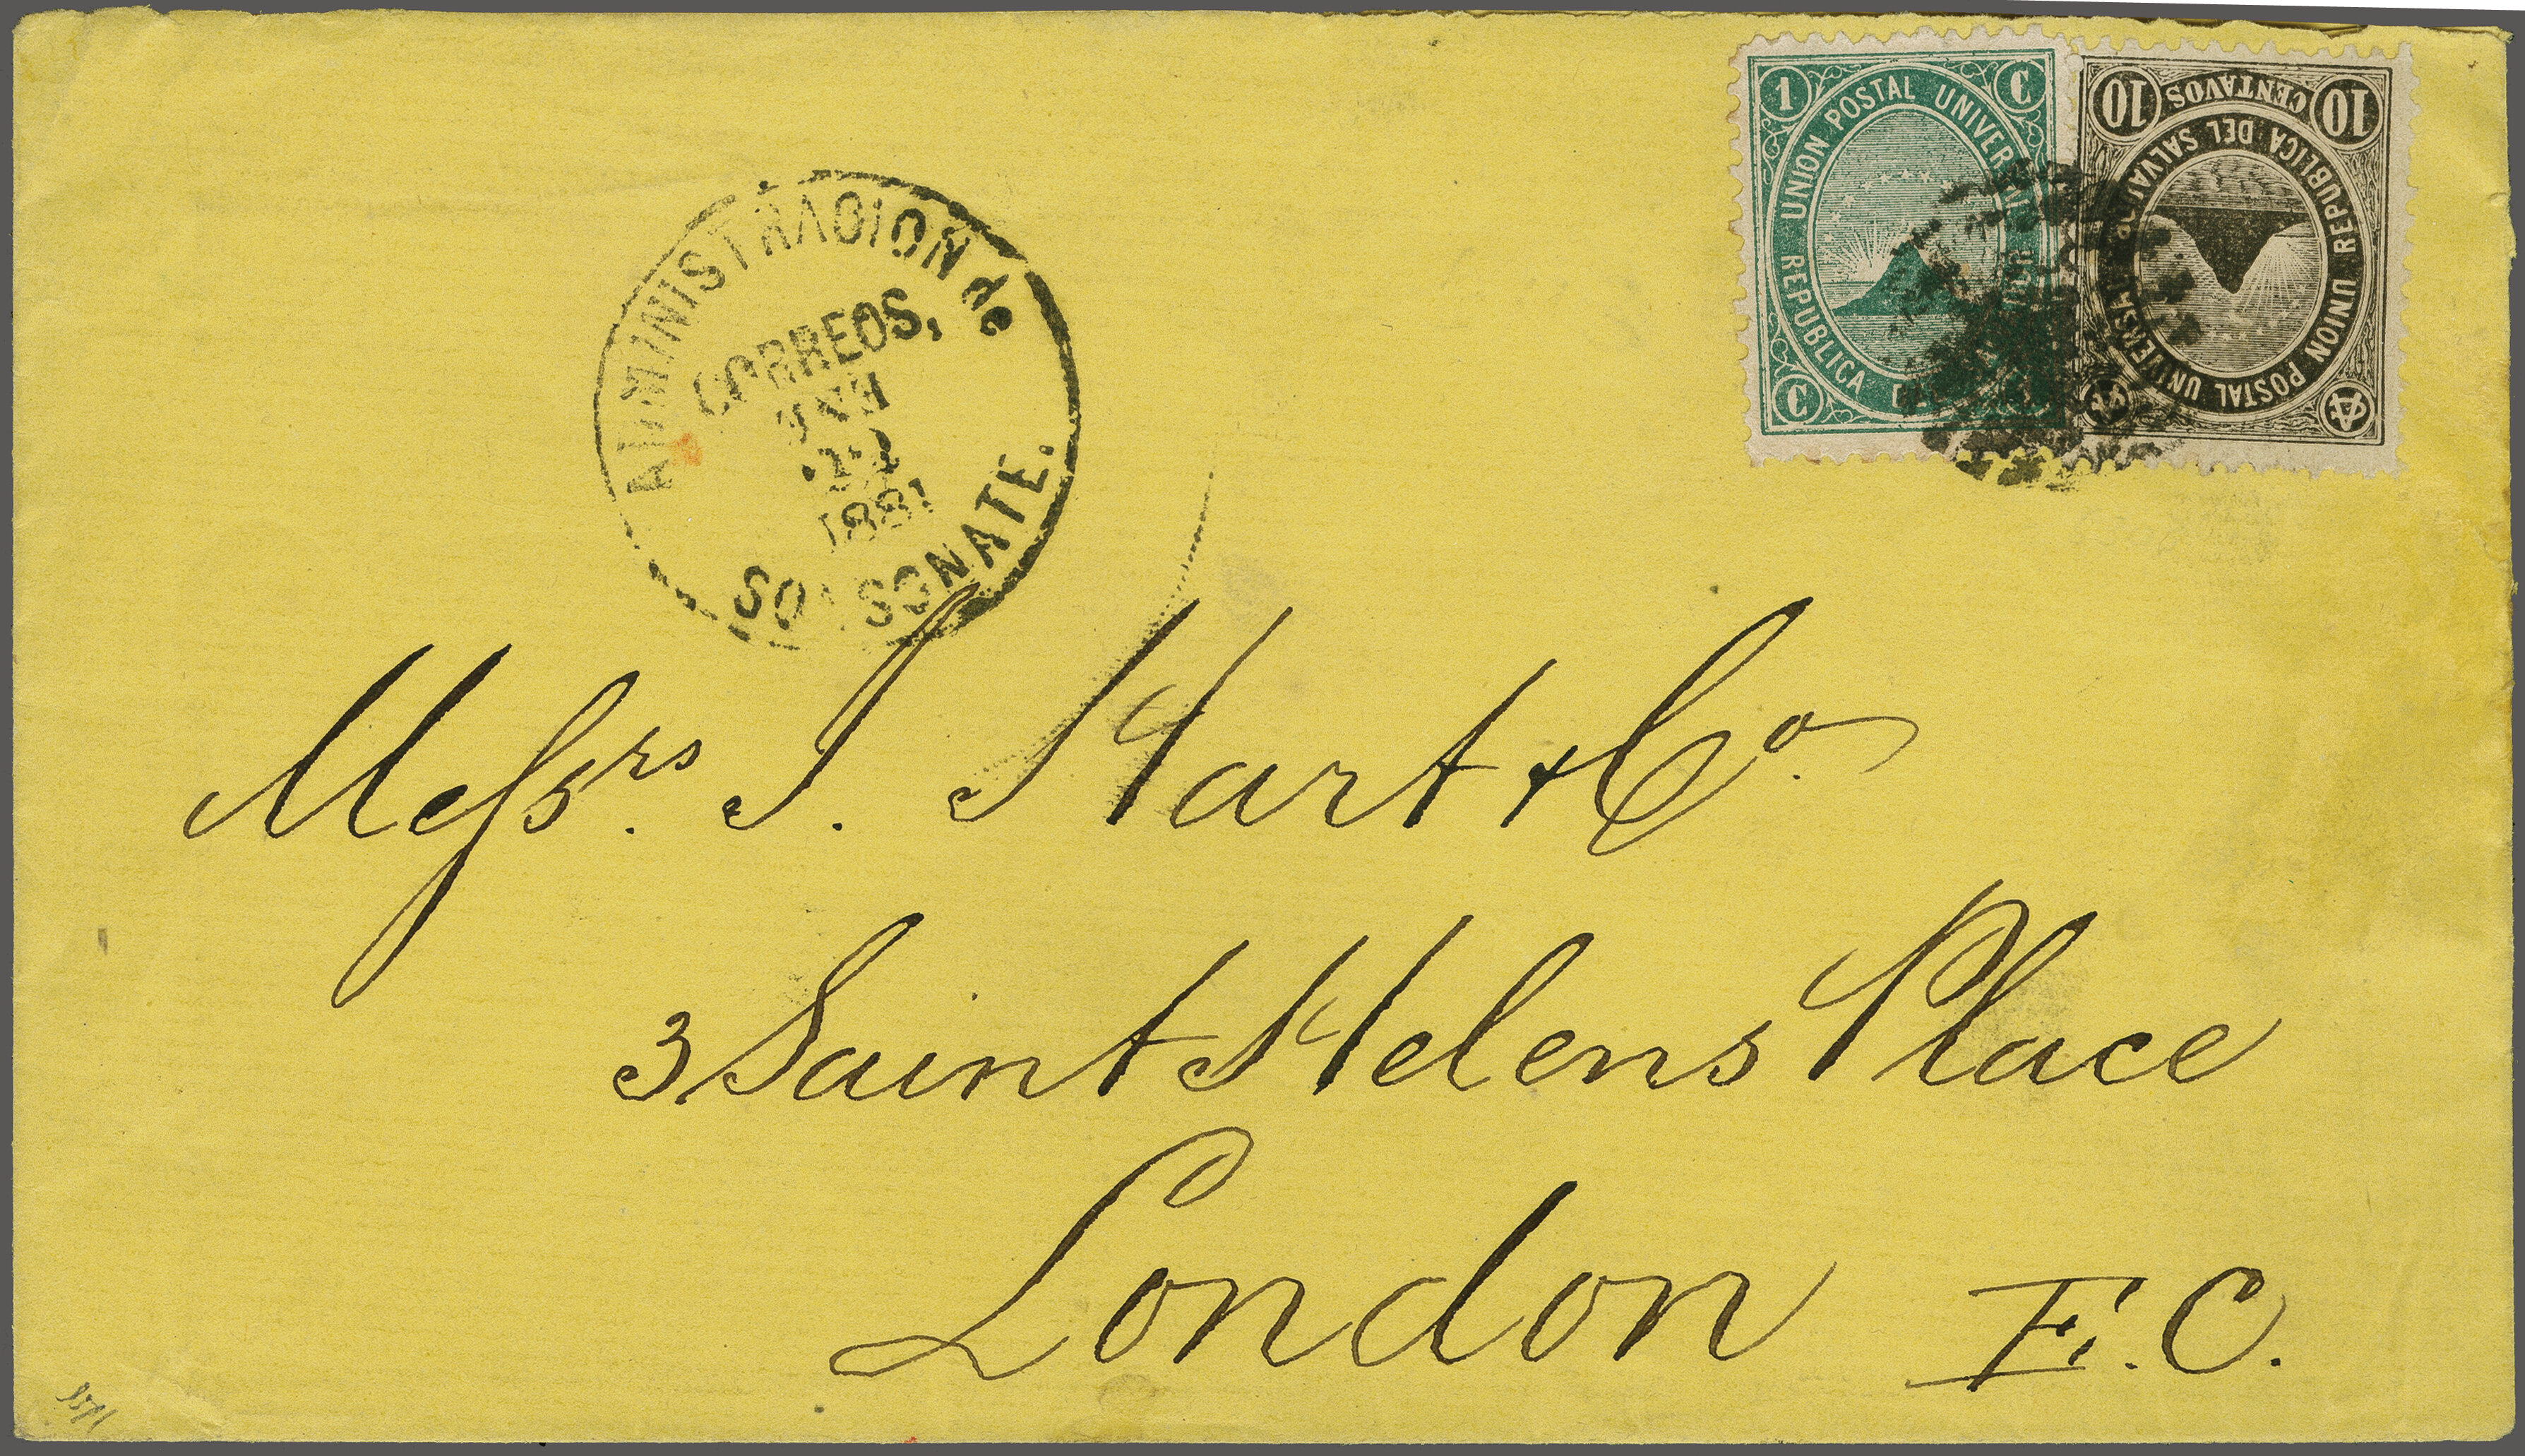 1 C
UNION POSTAL UNIVERSAL
REPUBLICA
C
10 CENTAVOS 10
REPUBLICA DEL SALVADOR
UNION POSTAL UNIVERSAL
ADMINISTRACION DE
CORREOS,
1881
SONSONATE.
Messrs. J. Hart & Co.
3 Saint Helens Place
London E.C.